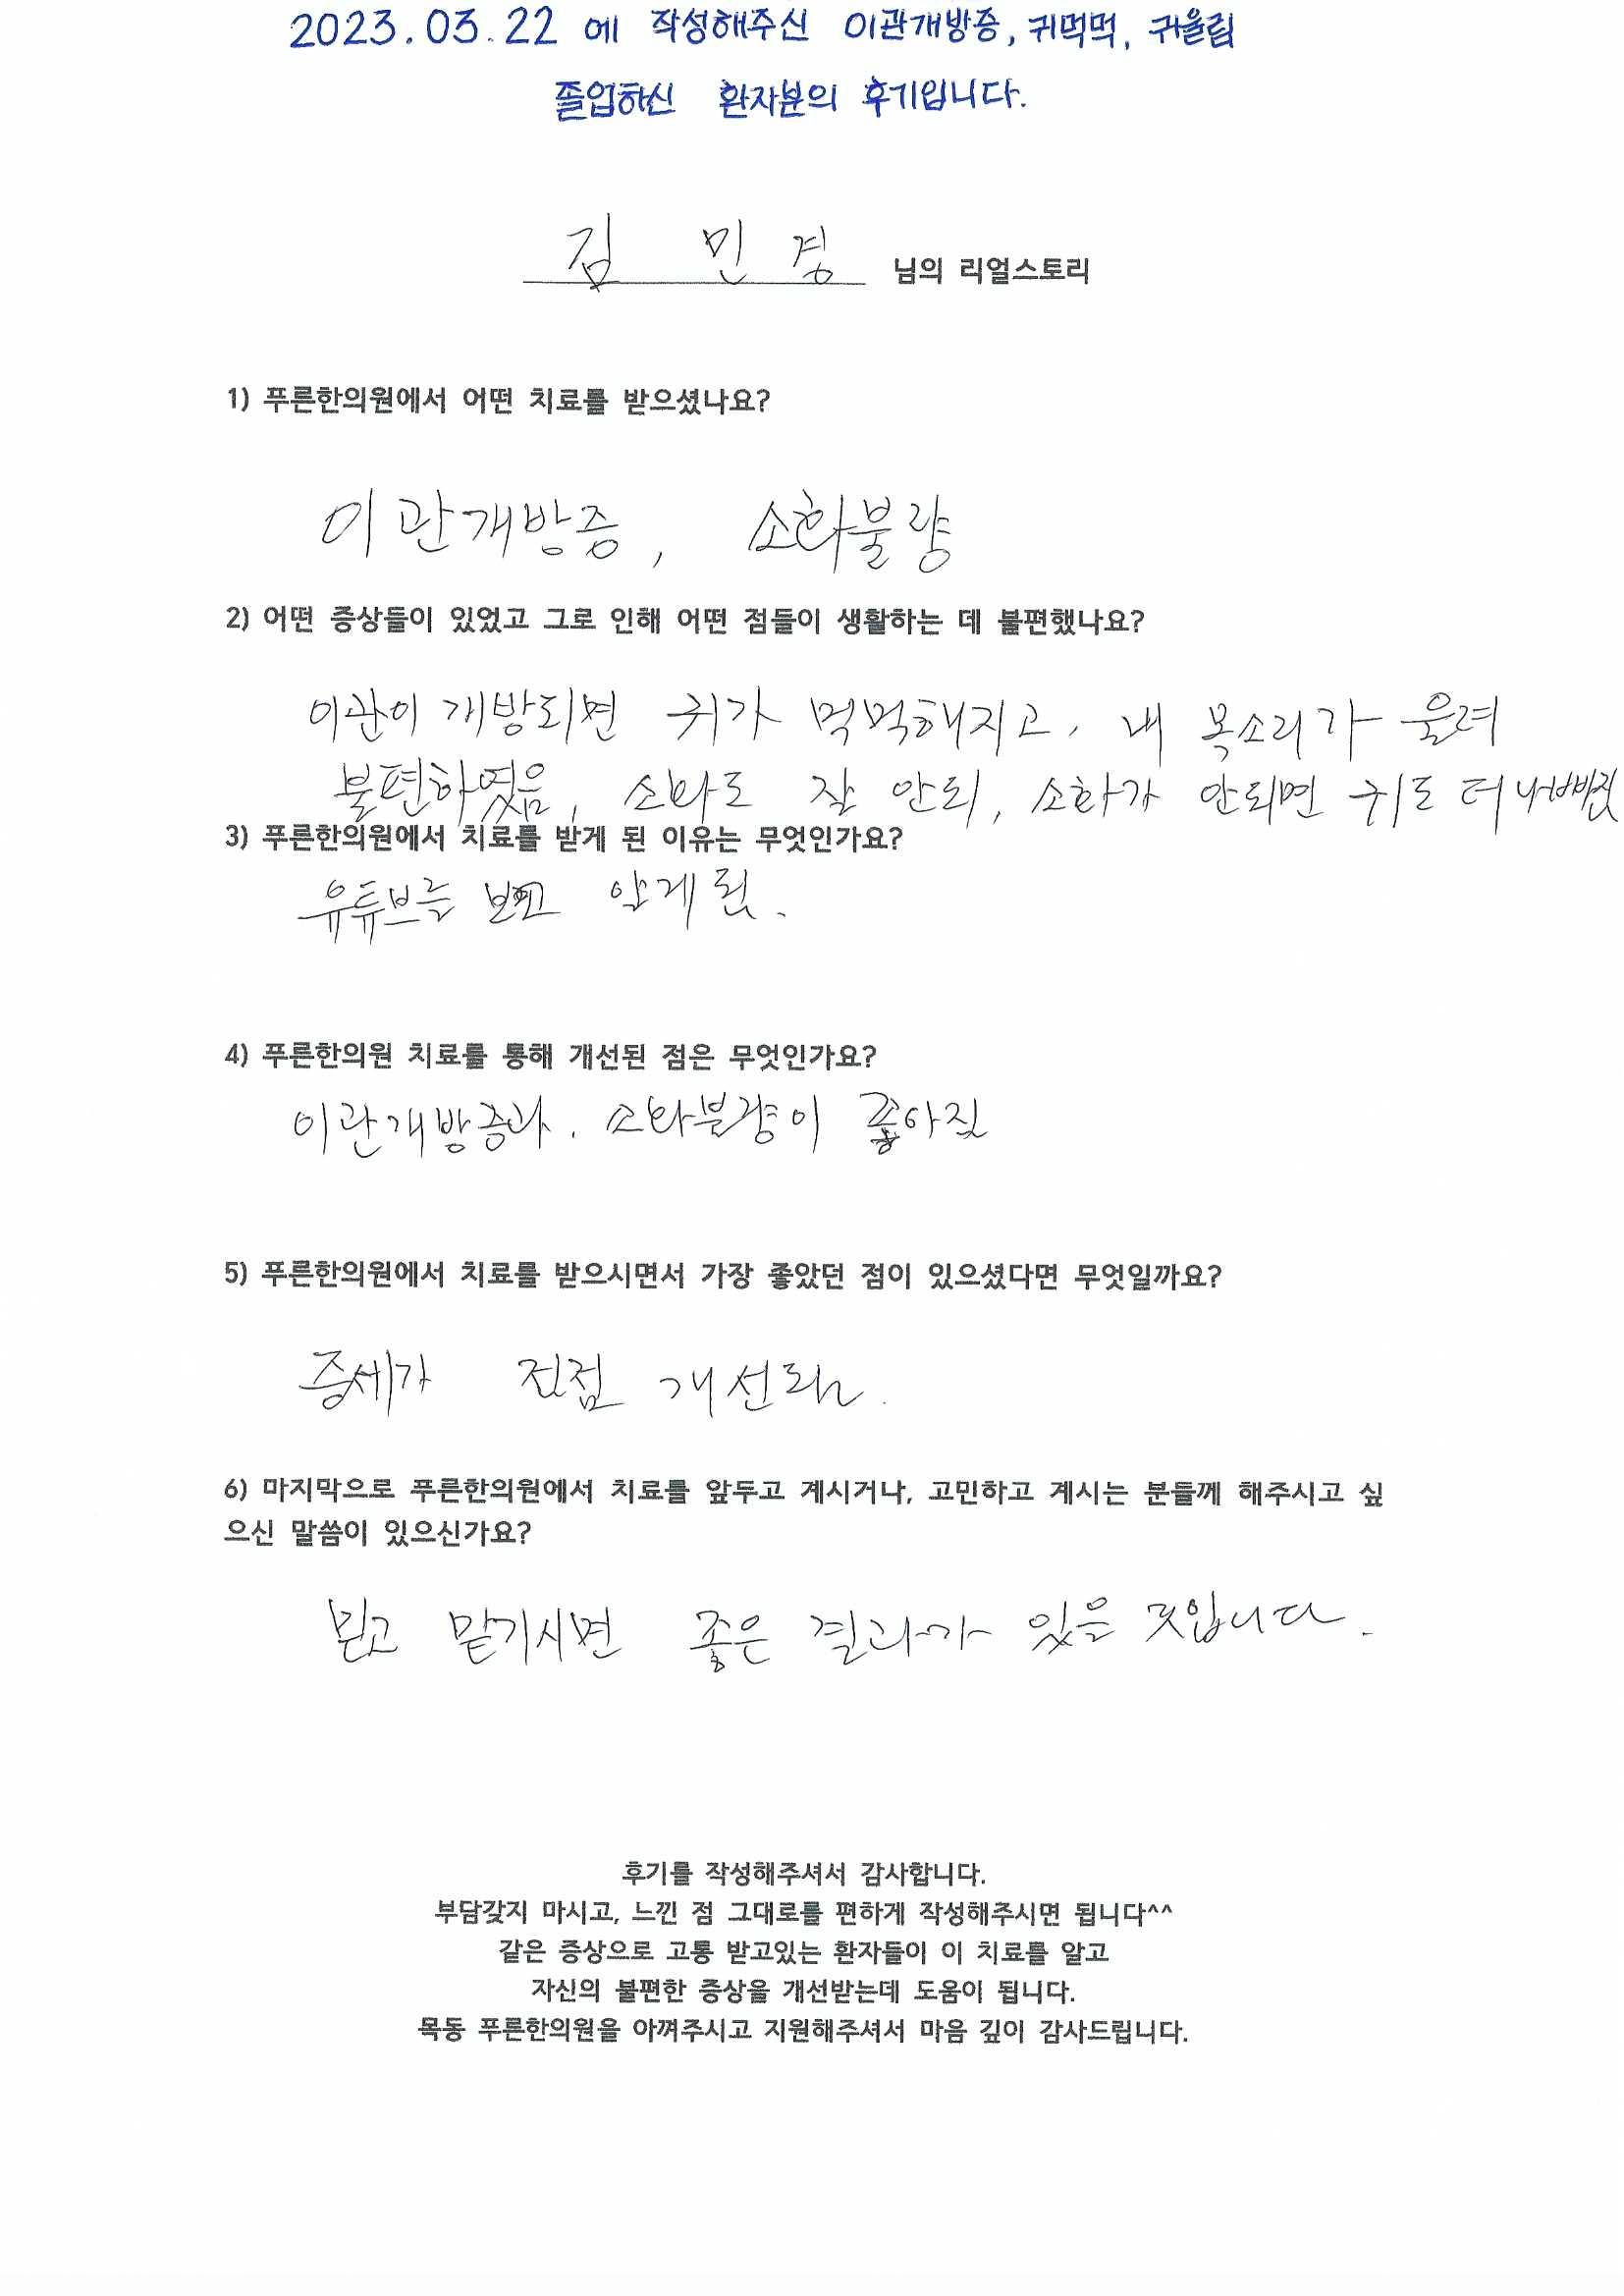 2023.03.22 에 작성해주신 이관개방증, 귀먹먹, 귀울림
졸업하신 환자분의 후기입니다.
김 민 경 님의 리얼스토리
1) 푸른한의원에서 어떤 치료를 받으셨나요?
이관개방증, 소화불량
2) 어떤 증상들이 있었고 그로 인해 어떤 점들이 생활하는 데 불편했나요?
이관이 개방되면 귀가 먹먹해지고, 내 목소리가 울려
불편하였음, 소화도 잘 안되, 소화가 안되면 귀도 더 나빠짐
3) 푸른한의원에서 치료를 받게 된 이유는 무엇인가요?
유튜브를 보고 알게 됨.
4) 푸른한의원 치료를 통해 개선된 점은 무엇인가요?
이관개방증과, 소화불량이 좋아짐
5) 푸른한의원에서 치료를 받으시면서 가장 좋았던 점이 있으셨다면 무엇일까요?
증세가 점점 개선됨.
6) 마지막으로 푸른한의원에서 치료를 앞두고 계시거나, 고민하고 계시는 분들께 해주시고 싶
으신 말씀이 있으신가요?
믿고 맡기시면 좋은 결과가 있을 것입니다.
후기를 작성해주셔서 감사합니다.
부담갖지 마시고, 느낀 점 그대로를 편하게 작성해주시면 됩니다^^
같은 증상으로 고통 받고있는 환자들이 이 치료를 알고
자신의 불편한 증상을 개선받는데 도움이 됩니다.
목동 푸른한의원을 아껴주시고 지원해주셔서 마음 깊이 감사드립니다.